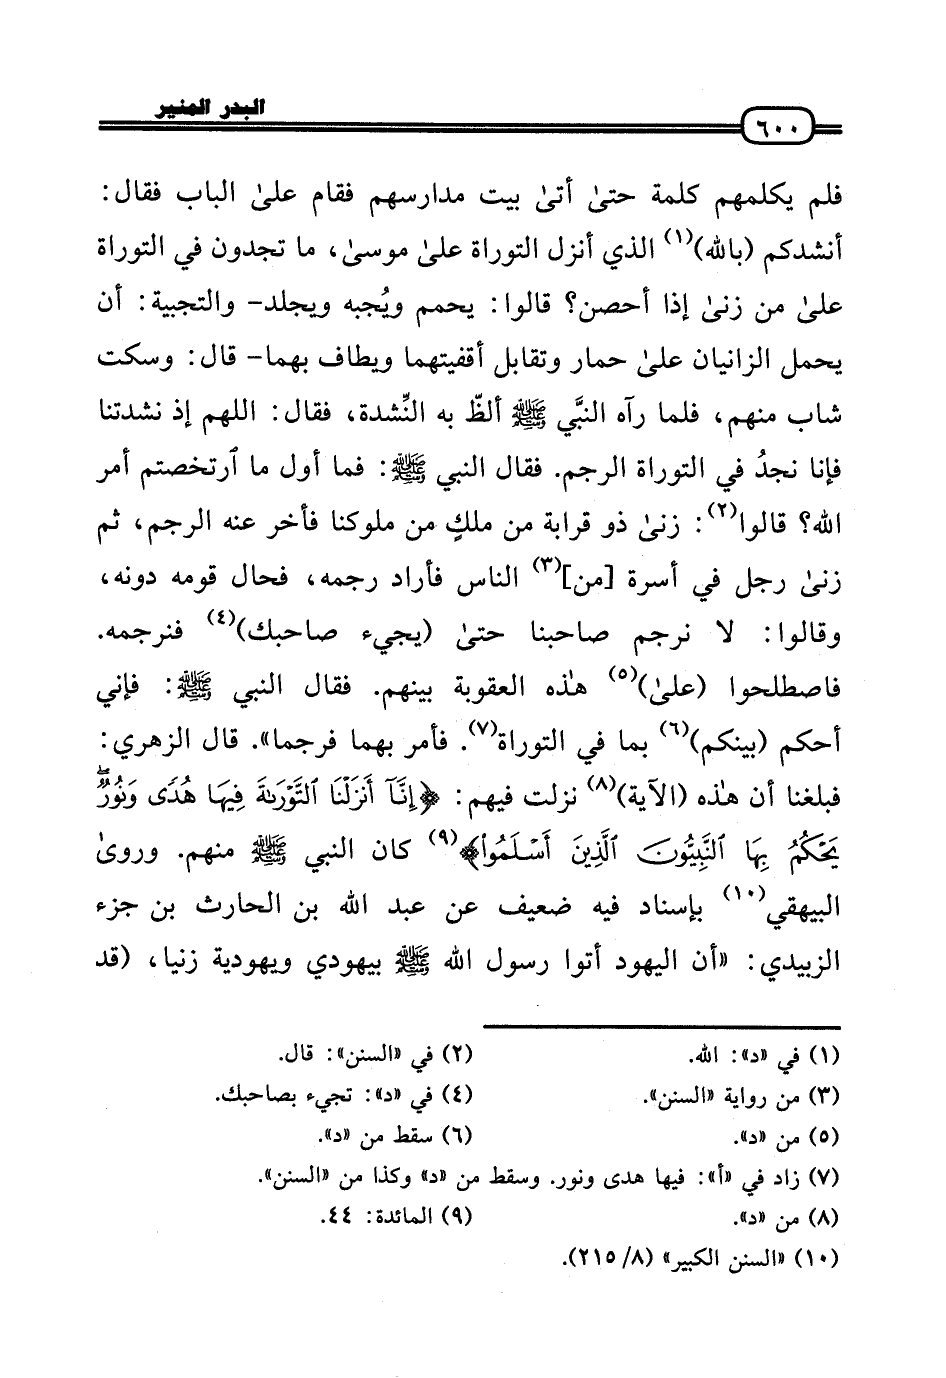 البدر المنير
٦٠٠
فلم يكلمهم كلمة حتىٰ أتىٰ بيت مدارسهم فقام علىٰ الباب فقال:
أنشدكم (بالله)(١) الذي أنزل التوراة علىٰ موسىٰ، ما تجدون في التوراة
علىٰ من زنىٰ إذا أحصن؟ قالوا: يحمم ويُجبه ويجلد- والتجبية: أن
يحمل الزانيان علىٰ حمار وتقابل أقفيتهما ويطاف بهما- قال: وسكت
شاب منهم، فلما رآه النبَّي ﷺ ألظّ به النِّشدة، فقال: اللهم إذ نشدتنا
فإنا نجدُ في التوراة الرجم. فقال النبي ﷺ: فما أول ما ٱرتخصتم أمر
الله؟ قالوا(٢): زنىٰ ذو قرابة من ملكٍ من ملوكنا فأخر عنه الرجم، ثم
زنىٰ رجل في أسرة [من](٣) الناس فأراد رجمه، فحال قومه دونه،
وقالوا: لا نرجم صاحبنا حتىٰ (يجيء صاحبك)(٤) فنرجمه.
فاصطلحوا (علىٰ)(٥) هٰذه العقوبة بينهم. فقال النبي ﷺ: فإني
أحكم (بينكم)(٦) بما في التوراة(٧). فأمر بهما فرجما». قال الزهري:
فبلغنا أن هٰذه (الآية)(٨) نزلت فيهم: ﴿إِنَّآ أَنزَلْنَا ٱلتَّوْرَىٰةَ فِيهَا هُدًى وَنُورٌۚ
يَحْكُمُ بِهَا ٱلنَّبِيُّونَ ٱلَّذِينَ أَسْلَمُوا۟﴾(٩) كان النبي ﷺ منهم. وروىٰ
البيهقي(١٠) بإسناد فيه ضعيف عن عبد الله بن الحارث بن جزء
الزبيدي: «أن اليهود أتوا رسول الله ﷺ بيهودي ويهودية زنيا، (قد
(١) في «د»: الله.
(٢) في «السنن»: قال.
(٣) من رواية «السنن».
(٤) في «د»: تجيء بصاحبك.
(٥) من «د».
(٦) سقط من «د».
(٧) زاد في «أ»: فيها هدى ونور. وسقط من «د» وكذا من «السنن».
(٨) من «د».
(٩) المائدة: ٤٤.
(١٠) «السنن الكبير» (٨/ ٢١٥).